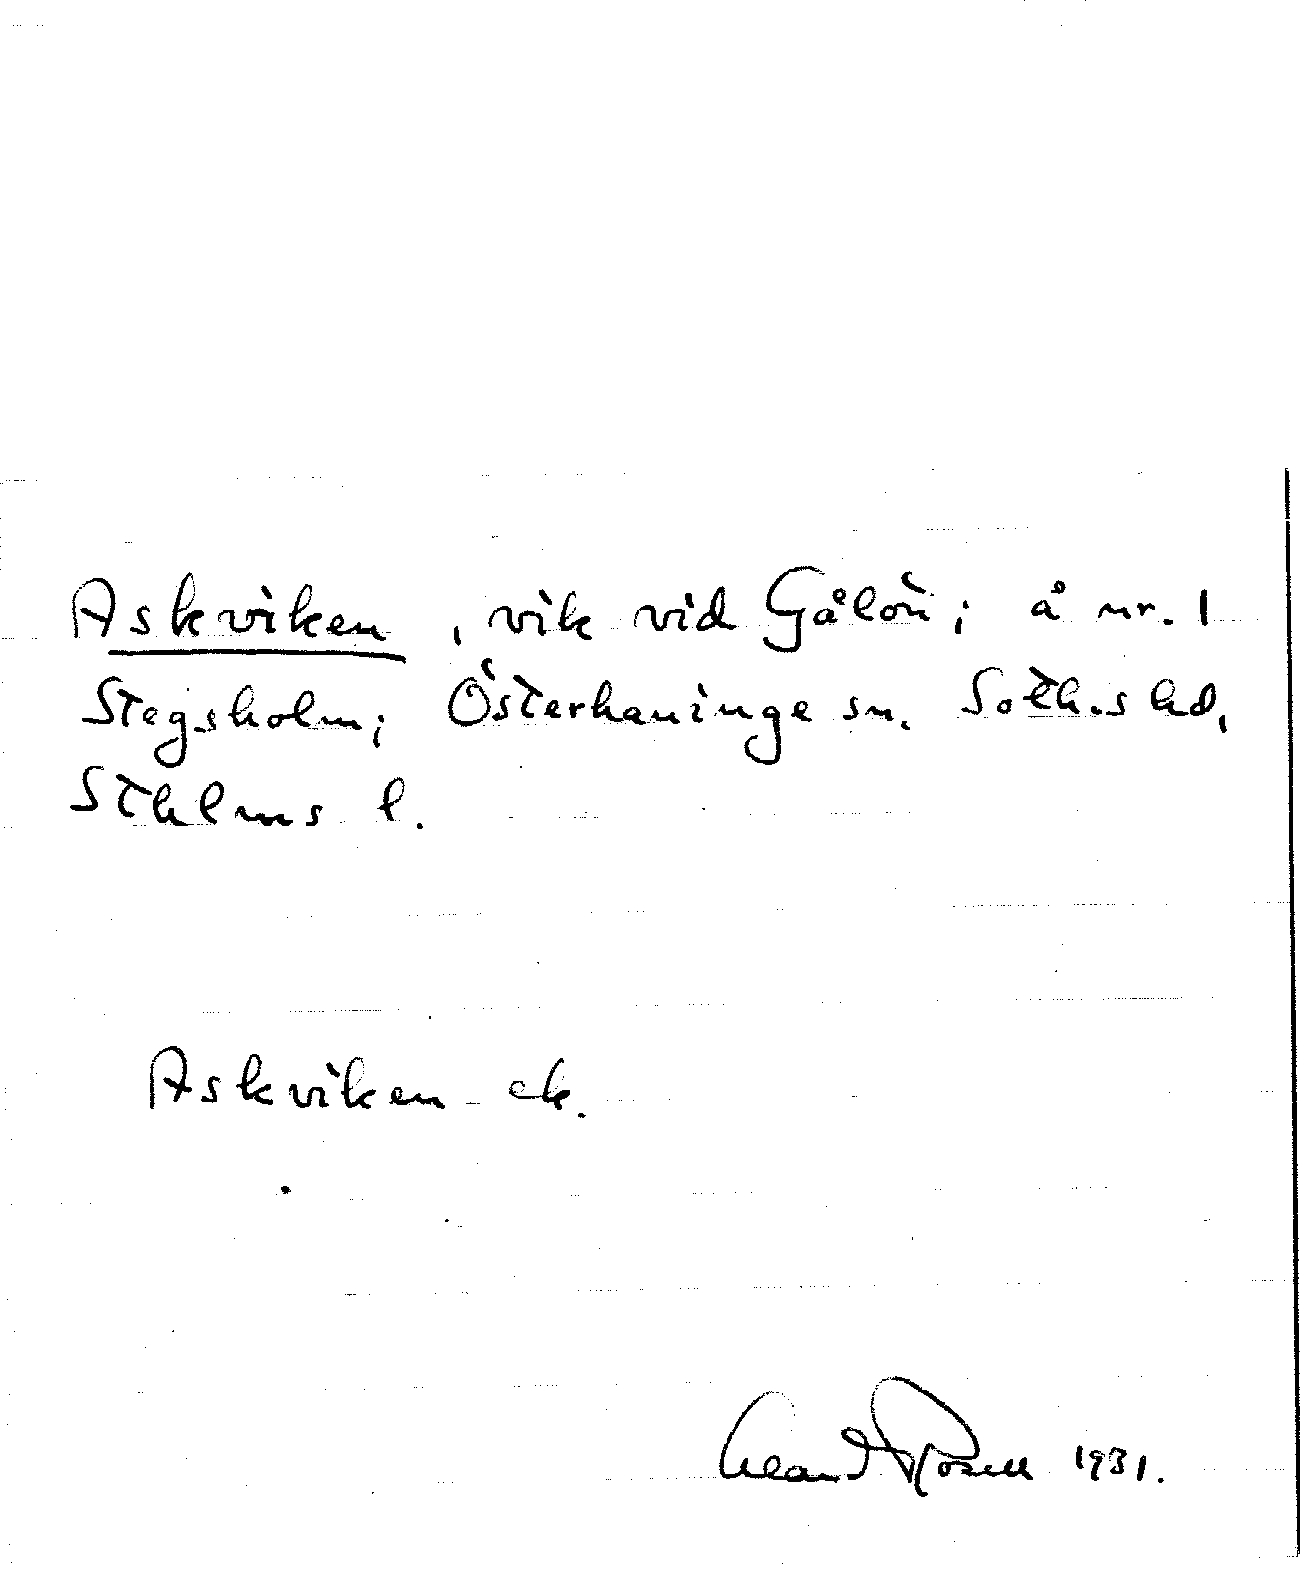 Askviken, vik vid Gålön; å nr. 1
Stegsholm; Österhaninge sn. Soth.s hd,
Sthlms l.
Askviken ek.
Rosell 1931.